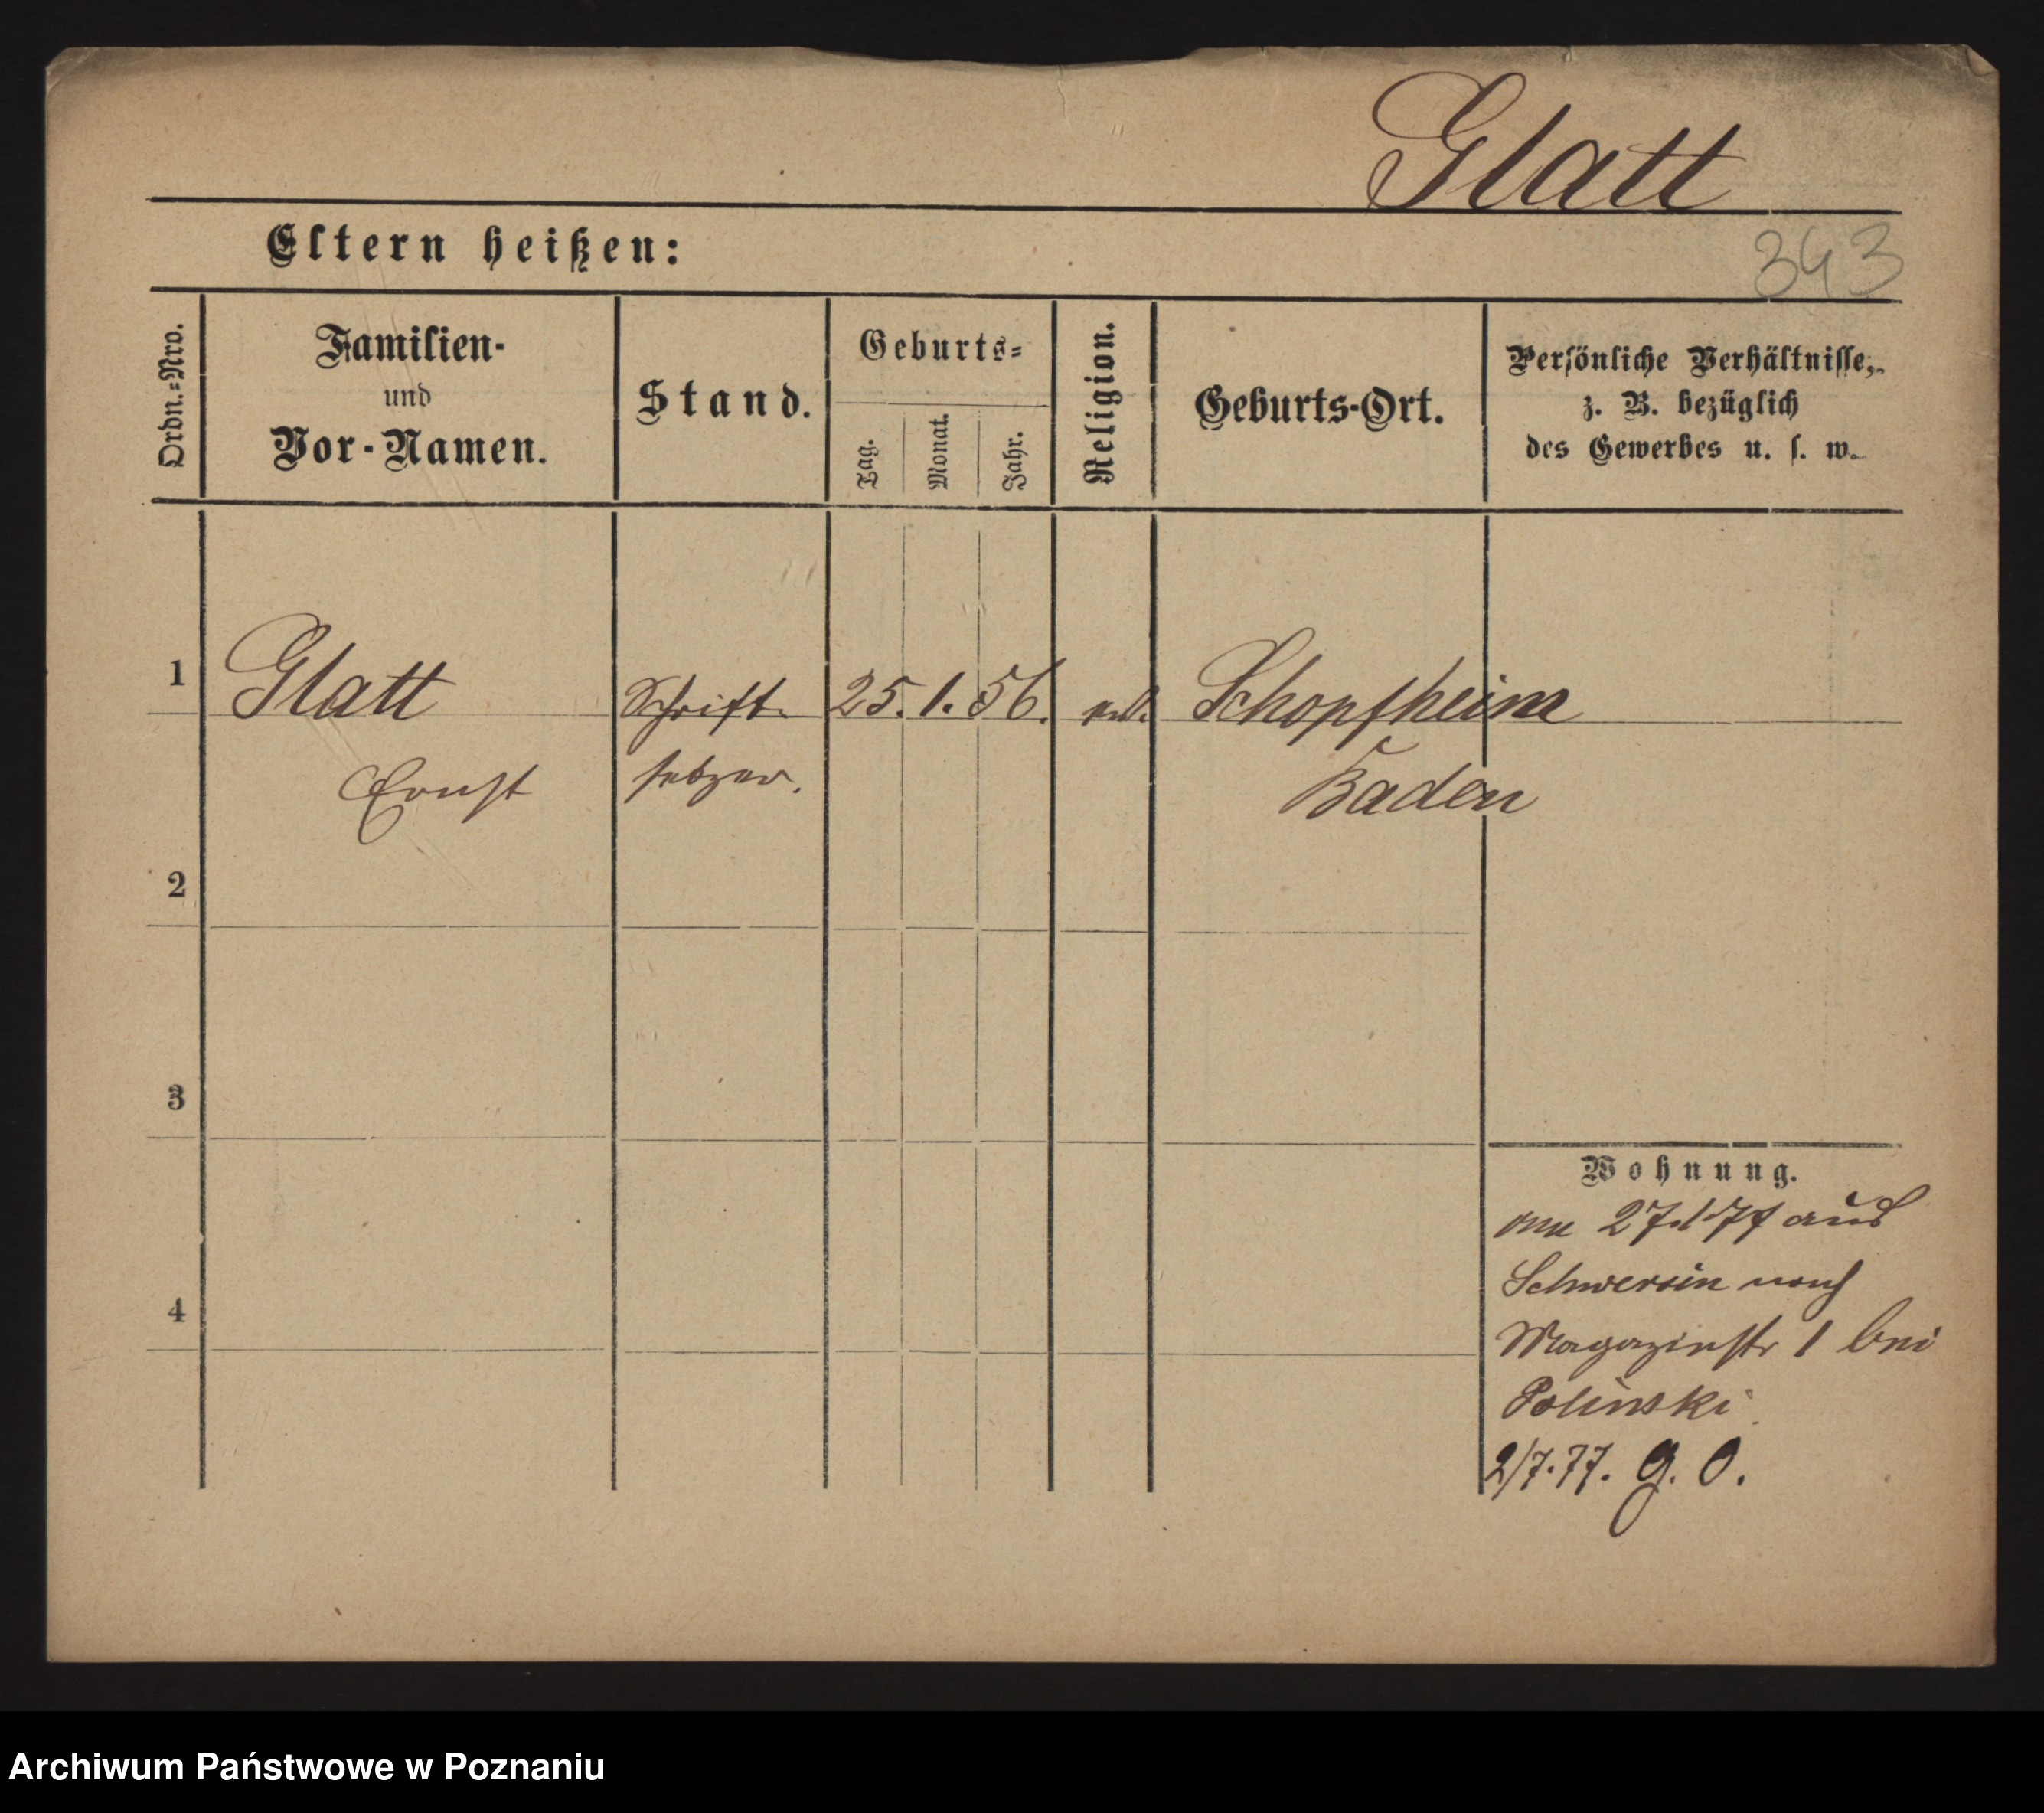 Glatt
343
Eltern heißen:
Ordn.=Nro.
Familien-
und
Vor-Namen.
Stand.
Geburts=
Tag.
Monat.
Jahr.
Religion.
Geburts-Ort.
Persönliche Verhältnisse,
z. B. bezüglich
des Gewerbes u. s. w.
1
Glatt
Schrift-
25. 1. 56.
Schopfheim
Ernst
setzer.
Baden
2
3
4
Wohnung.
27/1 77 aus
Schwerin nach
Magazinstr 1 bei
Polinski
2/7.77. g. O.
Archiwum Państwowe w Poznaniu